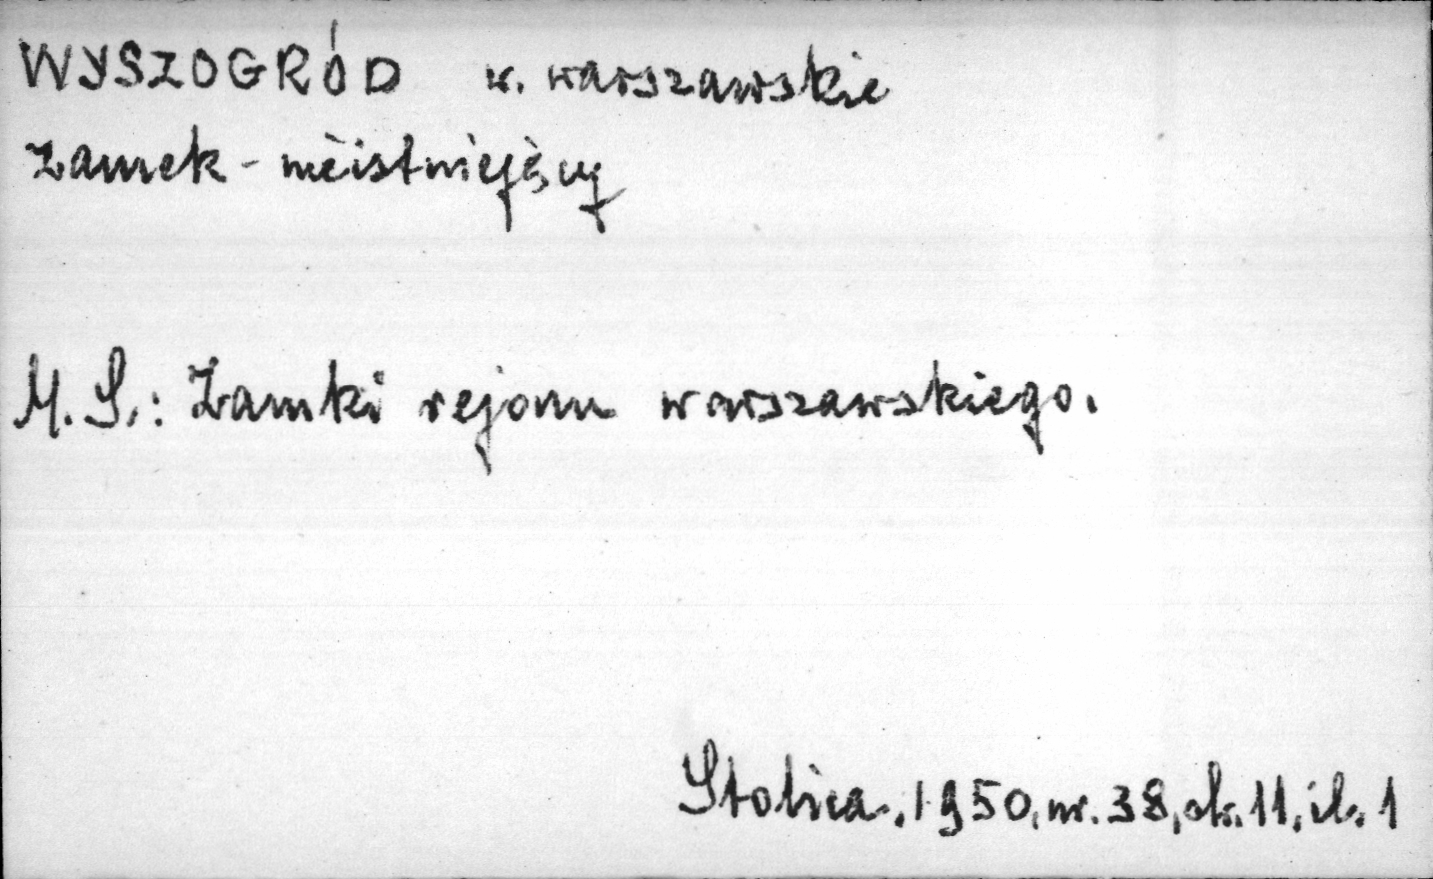 WYSZOGRÓD w. warszawskie
Zamek - nieistniejący
M. S.: Zamki rejonu warszawskiego.
Stolica, 1950, nr. 38, str. 11, il. 1